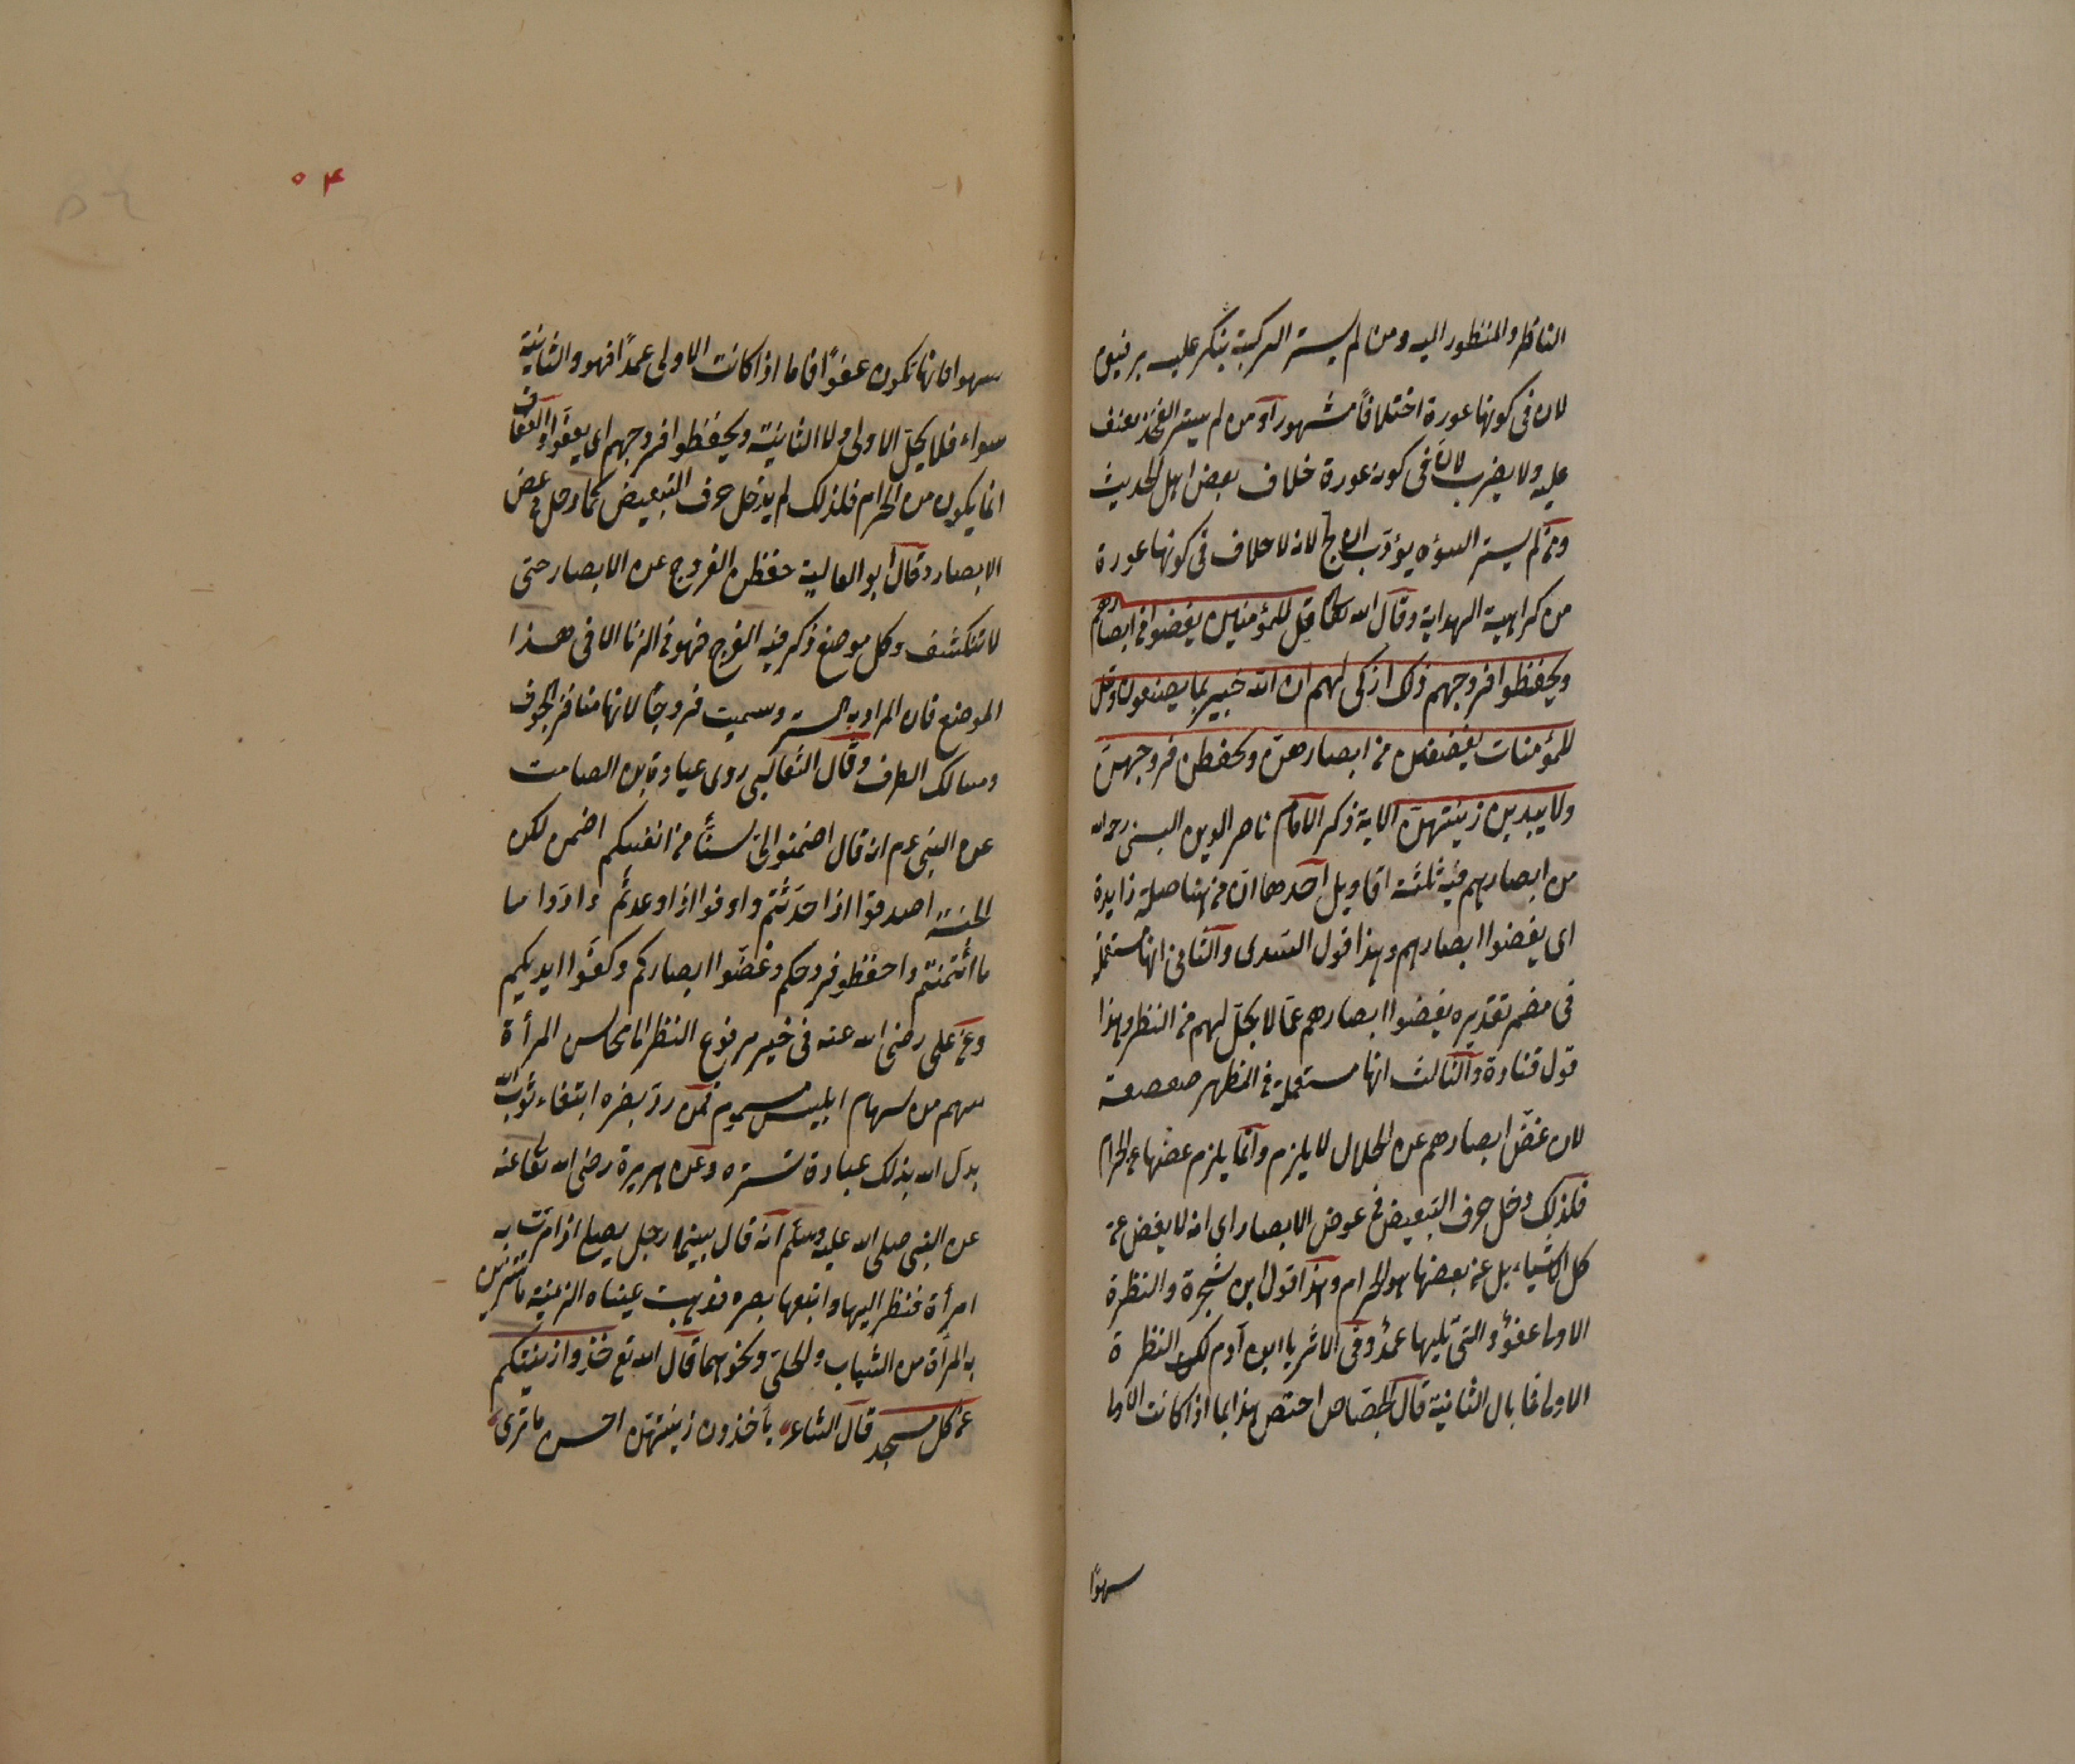 الناظر والمنظور اليه ومن لم يستر الركبة ينكر عليه برفق
لان في كونها عورة اختلافاً مشهورا ومن لم يستر الفخذ يعنف
عليه ولا يضرب لان في كونه عورة خلاف بعض اهل الحديث
ومن لم يستر السوءه يؤدب لانه لا خلاف في كونها عورة
من كراهية الهداية وقال الله تعالى قل للمؤمنين يغضوا من ابصارهم
ويحفظوا فروجهم ذلك ازكى لهم ان الله خبير بما يصنعون وقل
للمؤمنات يغضضن من ابصارهن ويحفظن فروجهن
ولا يبدين زينتهن الاية ذكر الامام ناصر الدين البستي رحمه الله
من ابصارهم فيه ثلثة اقاويل احدها ان من هنا صلة زايدة
اى يغضوا ابصارهم وهذا قول السدى والثاني انها مستعملة
في مضمر تقديره يغضوا ابصارهم عما لا يحل لهم من النظر وهذا
قول قتادة والثالث انها مستعملة في المظهر
لان غض ابصارهم عن الحلال لا يلزم وانما يلزم غضها عن الحرام
فلذلك دخل حرف التبعيض في غض الابصار اى انه لا يغض عن
كل الاشياء بل عن بعضها هو الحرام وهذا قول ابن شجرة والنظرة
الاولى عفوٌ والتي تليها عمدٌ وفي الاثر يا ابن آدم لك النظرة
الاولى فما بال الثانية قال الجصاص اختص هذا بما اذا كانت الاولى
سهوًا
٥٤
سهوا فانها تكون عفوًا فاما اذا كانت الاولى عمدًا فهو والثانية
سواء فلا يحل الاولى ولا الثانية ويحفظوا فروجهم اى يعفوا والعفاف
انما يكون من الحرام فلذلك لم يدخل حرف التبعيض كما دخل في غض
الابصار وقال ابو العالية حفظن الفروج عن الابصار حتى
لا تنكشف وكل موضع ذكر فيه الفرج فهو في الزنا الا في هذا
الموضع فان المراد به الستر وسميت فروجًا لانها منافذ الجوف
ومسالك الطرف وقال الثعالبي روى عبادة بن الصامت
عن النبي عم انه قال اضمنوا الى ستًا من انفسكم اضمن لكم
الجنة اصدقوا اذا حدثتم واوفوا اذا وعدتم وادّوا ما
ما ائتمنتم واحفظو فروجكم وغضّوا ابصاركم وكفّوا ايديكم
وعن على رضى الله عنه في خبر مرفوع النظر الى محاسن المرأة
سهم من سهام ابليس مسموم فمن ردّ بصره ابتغاء ثواب الله
بدل الله بذلك عبادة تستره وعن هريرة رضى الله تعالى عنه
عن النبي صلى الله عليه وسلم انه قال بينما رجل يصلى اذا مرّت به
امرأة فنظر اليها واتبعها بصره فذهبت عيناه الزينة ما تتزين
به المرأة من الثياب والحلى ونحوهما قال الله تع خذوا زينتكم
عند كل مسجد قال الشاعر يأخذون زينتهن احسن ما ترى